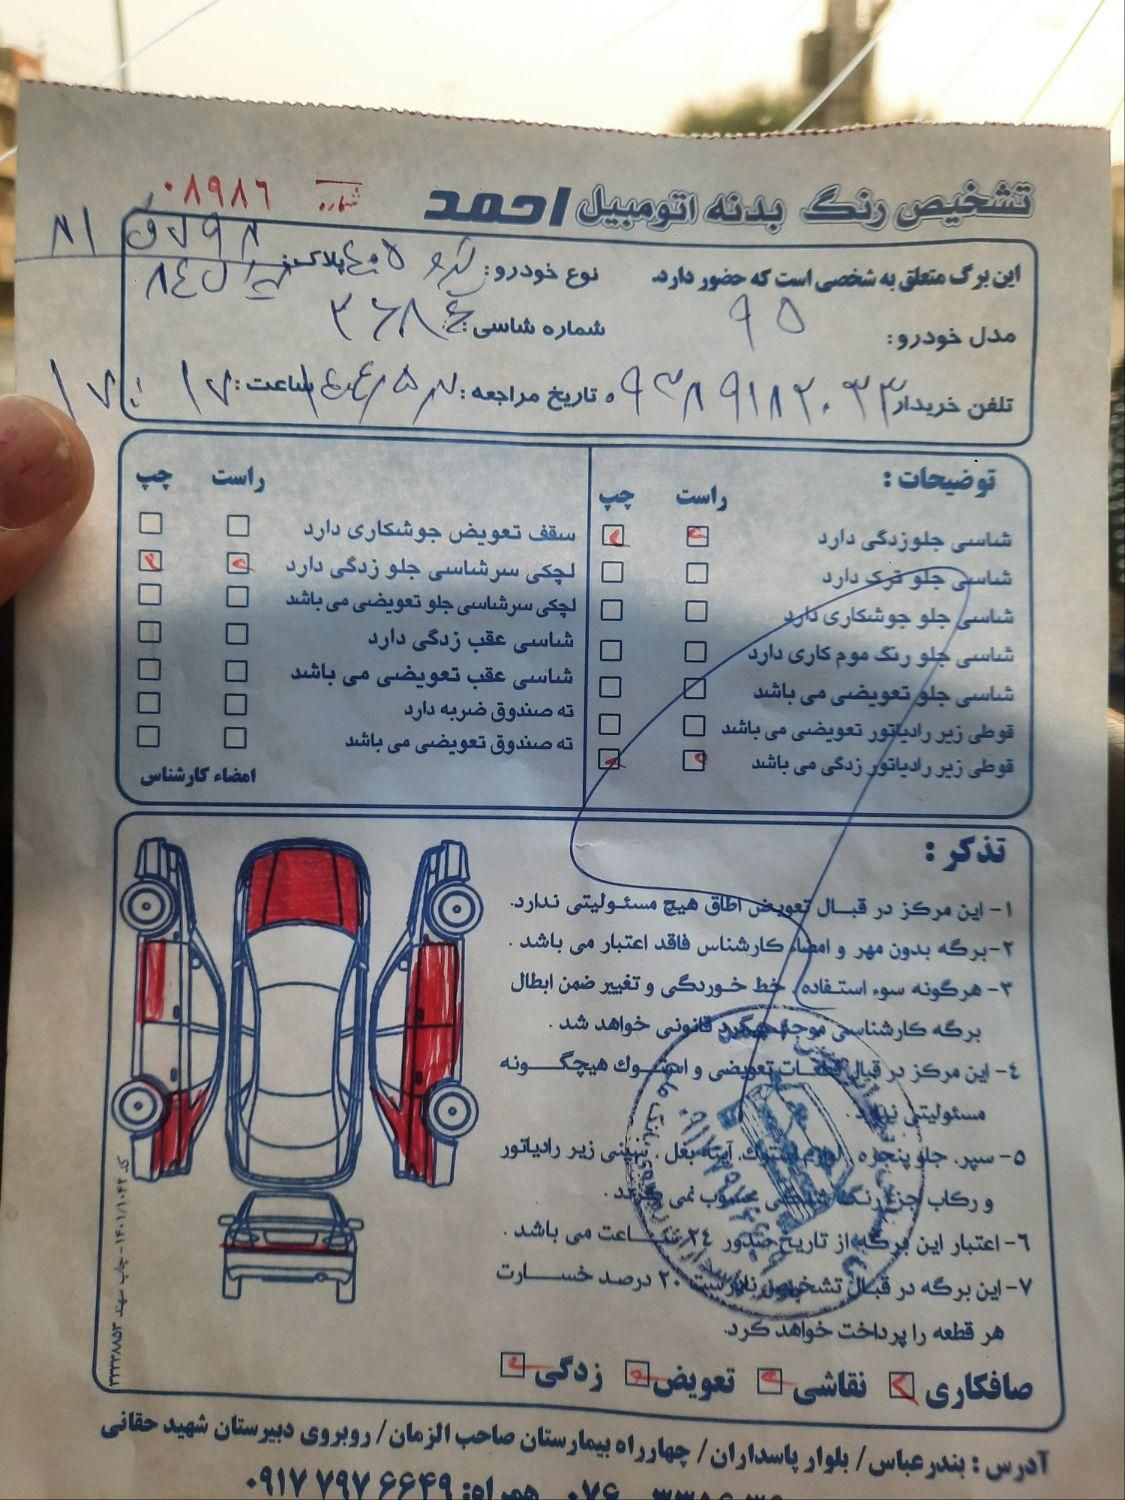 تشخیص رنگ بدنه اتومبیل احمد
شماره ۰۸۹۸۶
این برگ متعلق به شخصی است که حضور دارد.
نوع خودرو: پژو ۴۰۵ پلاک:
مدل خودرو: ۹۵
شماره شاسی:
تلفن خریدار
تاریخ مراجعه:
ساعت:
توضیحات :
راست چپ
شاسی جلوزدگی دارد
شاسی جلو ترک دارد
شاسی جلو جوشکاری دارد
شاسی جلو رنگ موم کاری دارد
شاسی جلو تعویضی می باشد
قوطی زیر رادیاتور تعویضی می باشد
قوطی زیر رادیاتور زدگی می باشد
راست چپ
سقف تعویض جوشکاری دارد
لچکی سرشاسی جلو زدگی دارد
لچکی سرشاسی جلو تعویضی می باشد
شاسی عقب زدگی دارد
شاسی عقب تعویضی می باشد
ته صندوق ضربه دارد
ته صندوق تعویضی می باشد
امضاء کارشناس
تذکر :
۱- این مرکز در قبال تعویض اطاق هیچ مسئولیتی ندارد.
۲- برگه بدون مهر و امضاء کارشناس فاقد اعتبار می باشد .
۳- هرگونه سوء استفاده، خط خوردگی و تغییر ضمن ابطال
برگه کارشناسی موجب پیگرد قانونی خواهد شد .
۴- این مرکز در قبال قطعات تعویضی و استوک هیچگونه
مسئولیتی ندارد .
۵- سپر، جلو پنجره ، آینه بغل ، سینی زیر رادیاتور
و رکاب جزء رنگ محسوب نمی گردد .
۶- اعتبار این برگه از تاریخ صدور ۲۴ ساعت می باشد .
۷- این برگه در قبال تشخیص نادرست ۲۰ درصد خسارت
هر قطعه را پرداخت خواهد کرد.
صافکاری نقاشی تعویض زدگی
کد ۱۴۰۱/۱۰۴۲ - چاپ سهند
آدرس : بندرعباس/ بلوار پاسداران/ چهارراه بیمارستان صاحب الزمان/ روبروی دبیرستان شهید حقانی
همراه: ۰۹۱۷ ۷۹۷ ۶۶۴۹